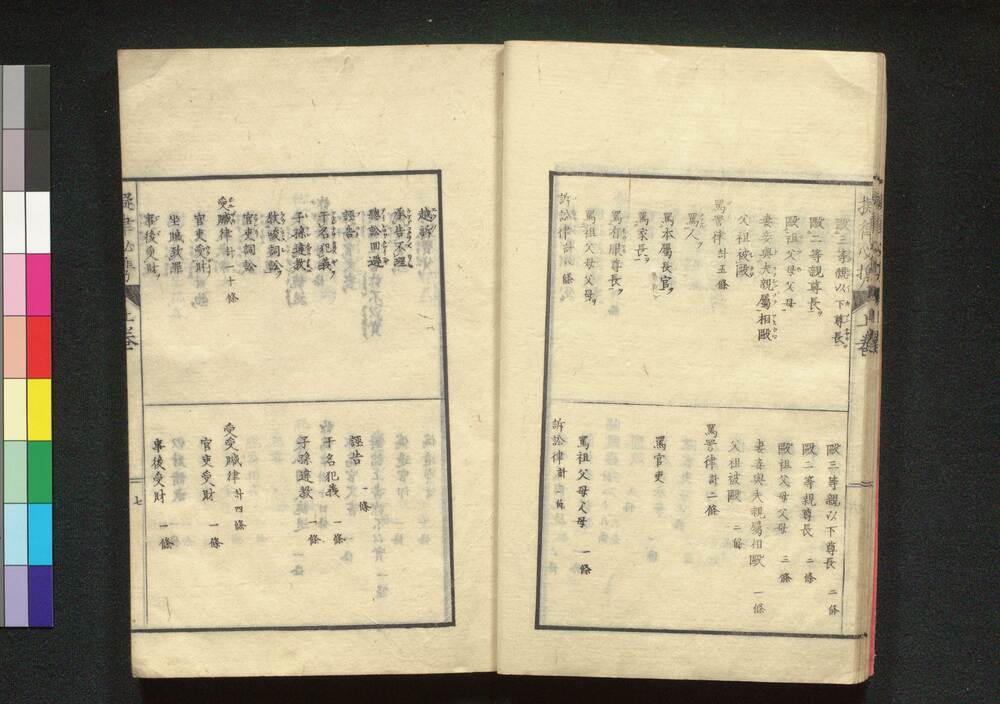 毆三等親以下尊長ヲ
毆二等親尊長ヲ
毆祖父母父母ヲ
妻妾與夫親屬相毆
父祖被毆
罵詈律計五條
罵人ヲ
罵本屬長官ヲ
罵家長ヲ
罵有服尊長ヲ
罵祖父母父母ヲ
訴訟律計 條
毆三等親以下尊長 二條
毆二等親尊長 二條
毆祖父母父母 三條
妻妾與夫親屬相毆 一條
父祖被毆 二條
罵詈律計二條
罵官吏
罵祖父母父母 一條
訴訟律計 條
上卷
越訴
承告不理
聽訟回避
誣告
干名犯義
子孫違教
教唆詞訟
官吏詞訟
受贓律計一十條
官吏受財
坐贓致罪
事後受財
誣告 一條
干名犯義 一條
子孫違教 一條
受贓律計四條
官吏受財 一條
事後受財 一條
上卷
七